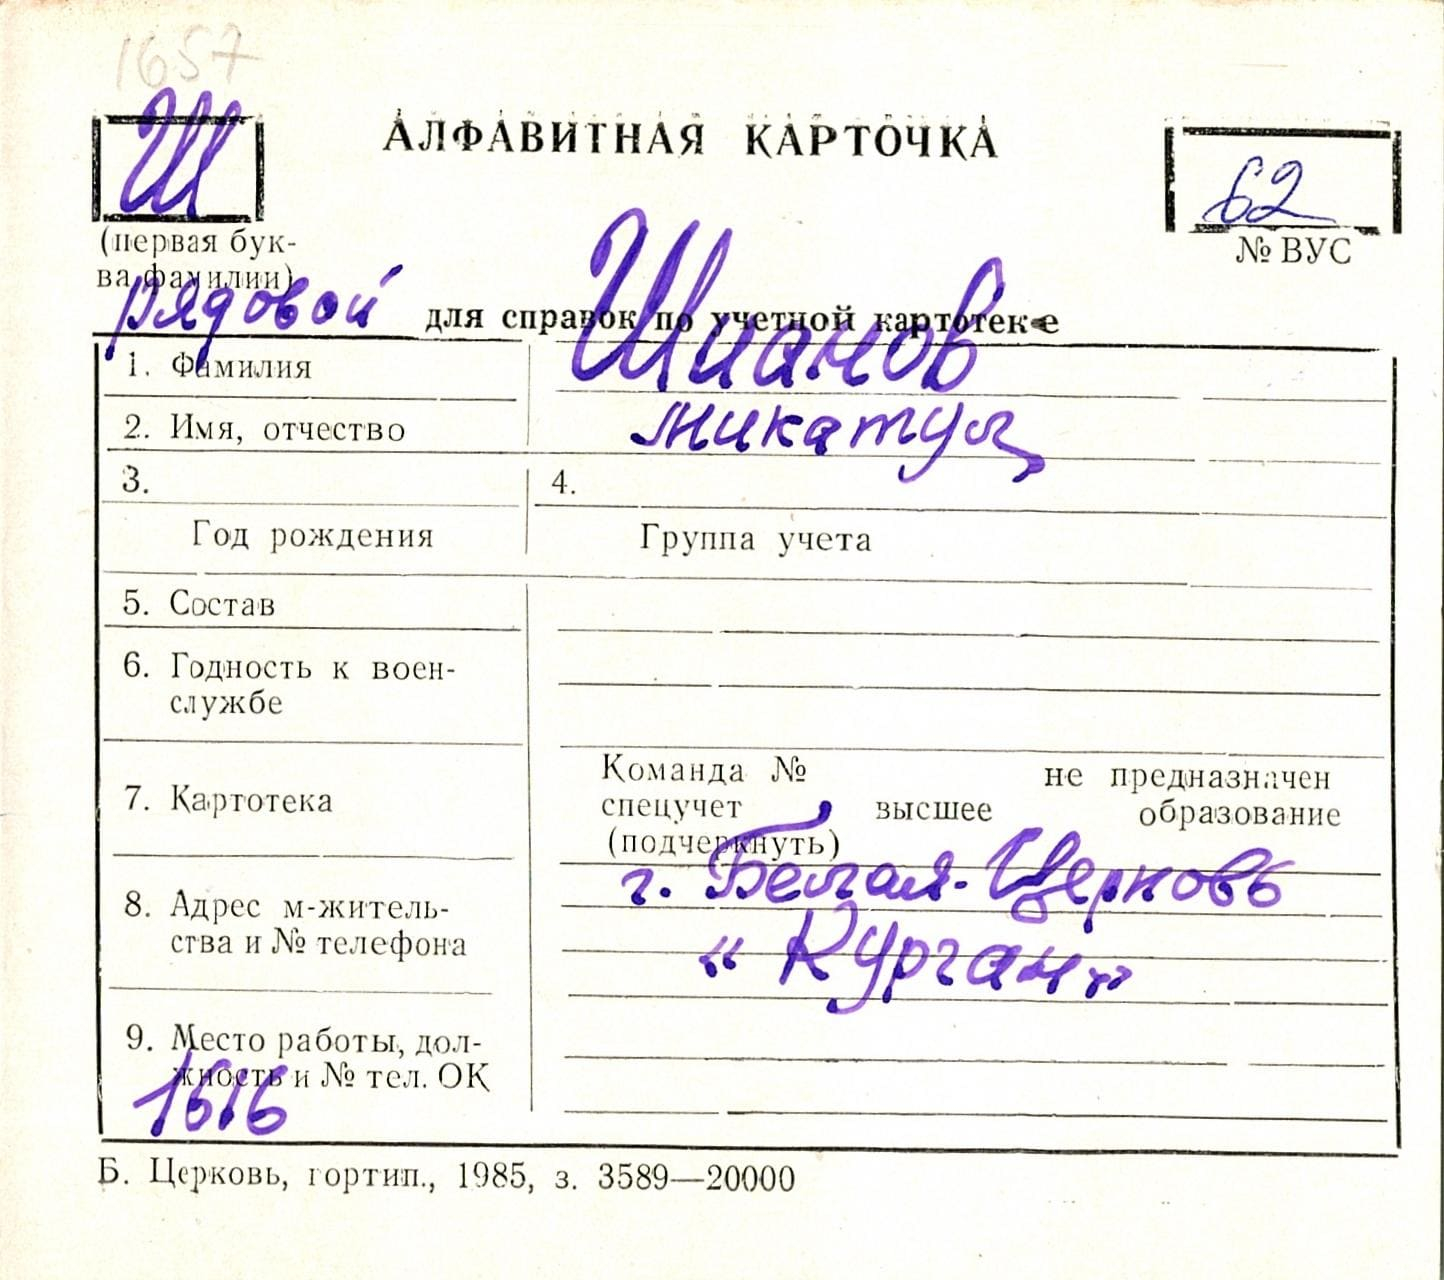 1657
Ш
АЛФАВИТНАЯ КАРТОЧКА
62
(первая бук-
ва фамилии)
№ ВУС
рядовой
для справок по учетной картотеке
1. Фамилия
Шианов
2. Имя, отчество
Микатул
3.
4.
Год рождения
Группа учета
5. Состав
6. Годность к воен-
службе
7. Картотека
Команда № не предназначен
спецучет высшее образование
(подчеркнуть)
8. Адрес м-житель-
ства и № телефона
г. Белая-Церковь
"Курган"
9. Место работы, дол-
жность и № тел. ОК
1616
Б. Церковь, гортип., 1985, з. 3589—20000